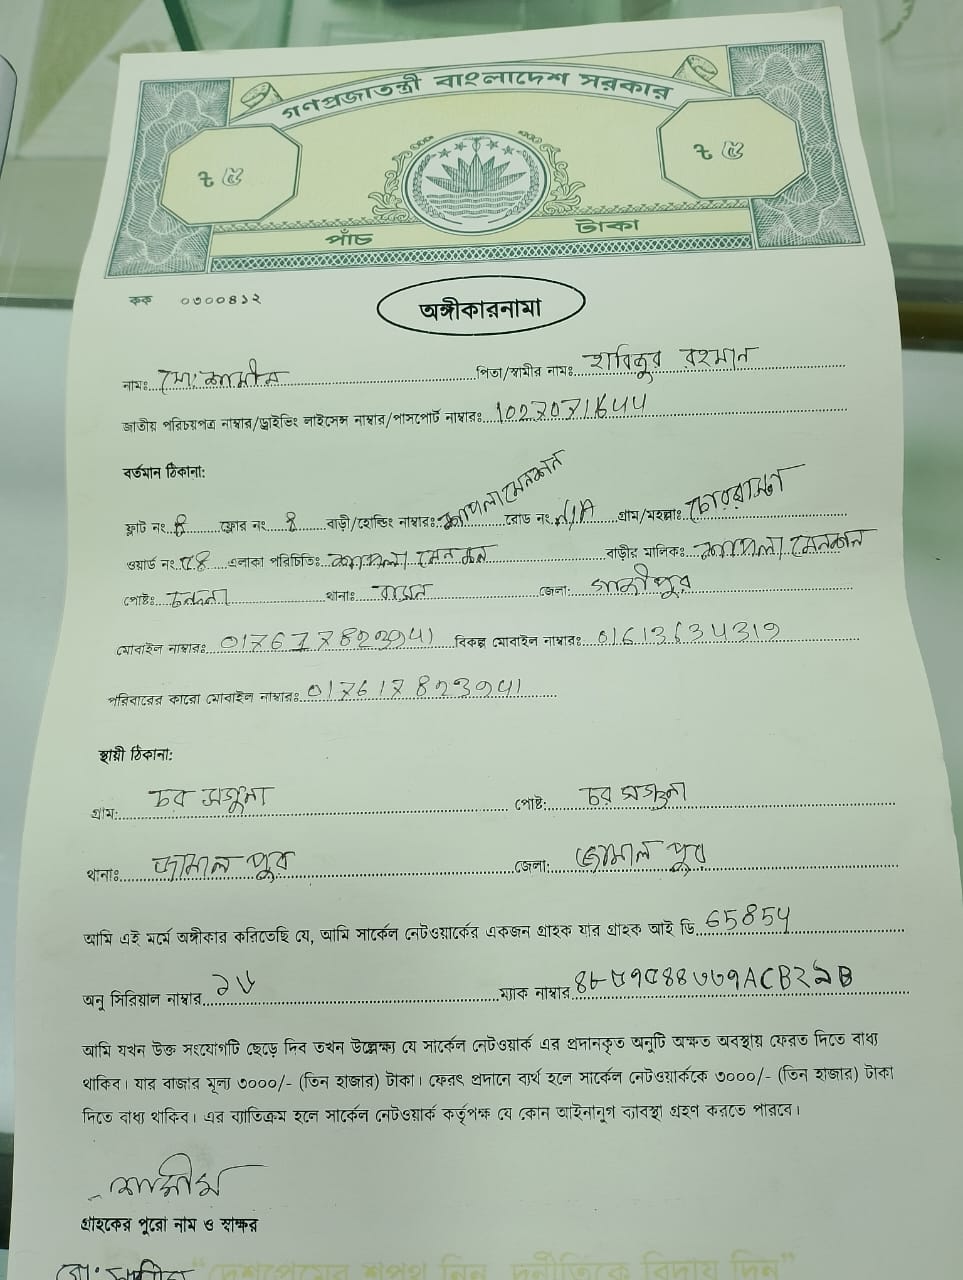 গণপ্রজাতন্ত্রী বাংলাদেশ সরকার
৳ ৫ ৳ ৫
পাঁচ টাকা
কক ০৩০০৪১২
অঙ্গীকারনামা
নামঃ মোঃ শামীম পিতা/স্বামীর নামঃ হাবিবুর রহমান
জাতীয় পরিচয়পত্র নাম্বার/ড্রাইভিং লাইসেন্স নাম্বার/পাসপোর্ট নাম্বারঃ
বর্তমান ঠিকানা:
ফ্লাট নং. ফ্লোর নং বাড়ী/হোল্ডিং নাম্বারঃ রোড নং. N/A গ্রাম/মহল্লাঃ চৌরাস্তা
ওয়ার্ড নং. এলাকা পরিচিতিঃ বাড়ীর মালিকঃ
পোষ্টঃ থানাঃ বাসন জেলা: গাজীপুর
মোবাইল নাম্বারঃ বিকল্প মোবাইল নাম্বারঃ 01613634319
পরিবারের কারো মোবাইল নাম্বারঃ
স্থায়ী ঠিকানা:
গ্রাম: চর পোষ্ট: চর
থানাঃ জামাল পুর জেলা: জামাল পুর
আমি এই মর্মে অঙ্গীকার করিতেছি যে, আমি সার্কেল নেটওয়ার্কের একজন গ্রাহক যার গ্রাহক আই ডি. 65854
অনু সিরিয়াল নাম্বার ম্যাক নাম্বার
আমি যখন উক্ত সংযোগটি ছেড়ে দিব তখন উল্লেক্ষ্য যে সার্কেল নেটওয়ার্ক এর প্রদানকৃত অনুটি অক্ষত অবস্থায় ফেরত দিতে বাধ্য
থাকিব। যার বাজার মূল্য ৩০০০/- (তিন হাজার) টাকা। ফেরৎ প্রদানে ব্যর্থ হলে সার্কেল নেটওয়ার্ককে ৩০০০/- (তিন হাজার) টাকা
দিতে বাধ্য থাকিব। এর ব্যতিক্রম হলে সার্কেল নেটওয়ার্ক কর্তৃপক্ষ যে কোন আইনানুগ ব্যাবস্থা গ্রহণ করতে পারবে।
শামীম
গ্রাহকের পুরো নাম ও স্বাক্ষর
মো: শামীম "দেশপ্রেমের শপথ নিন, দুর্নীতিকে বিদায় দিন"